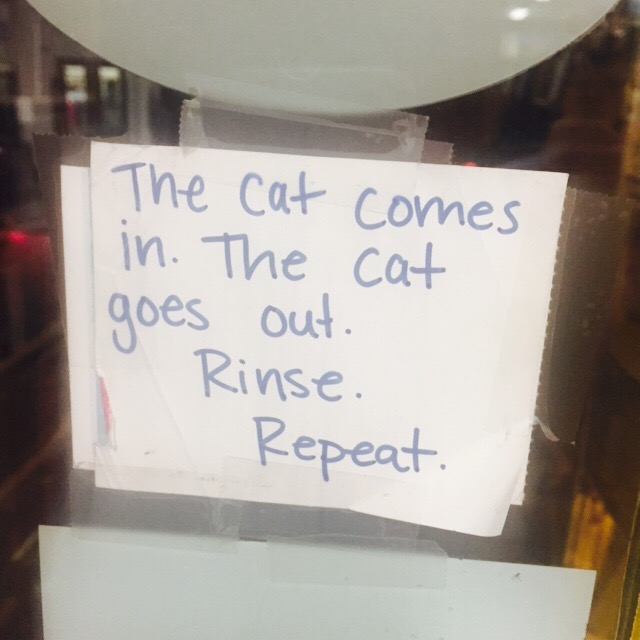 The Cat Comes
in. The Cat
goes out.
Rinse.
Repeat.